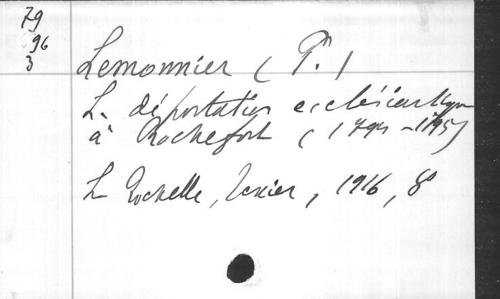 79
96
3
Lemonnier (P.)
L. déportation ecclésiastique
à Rochefort (1794-1795)
La Rochelle, Texier, 1916, 8°